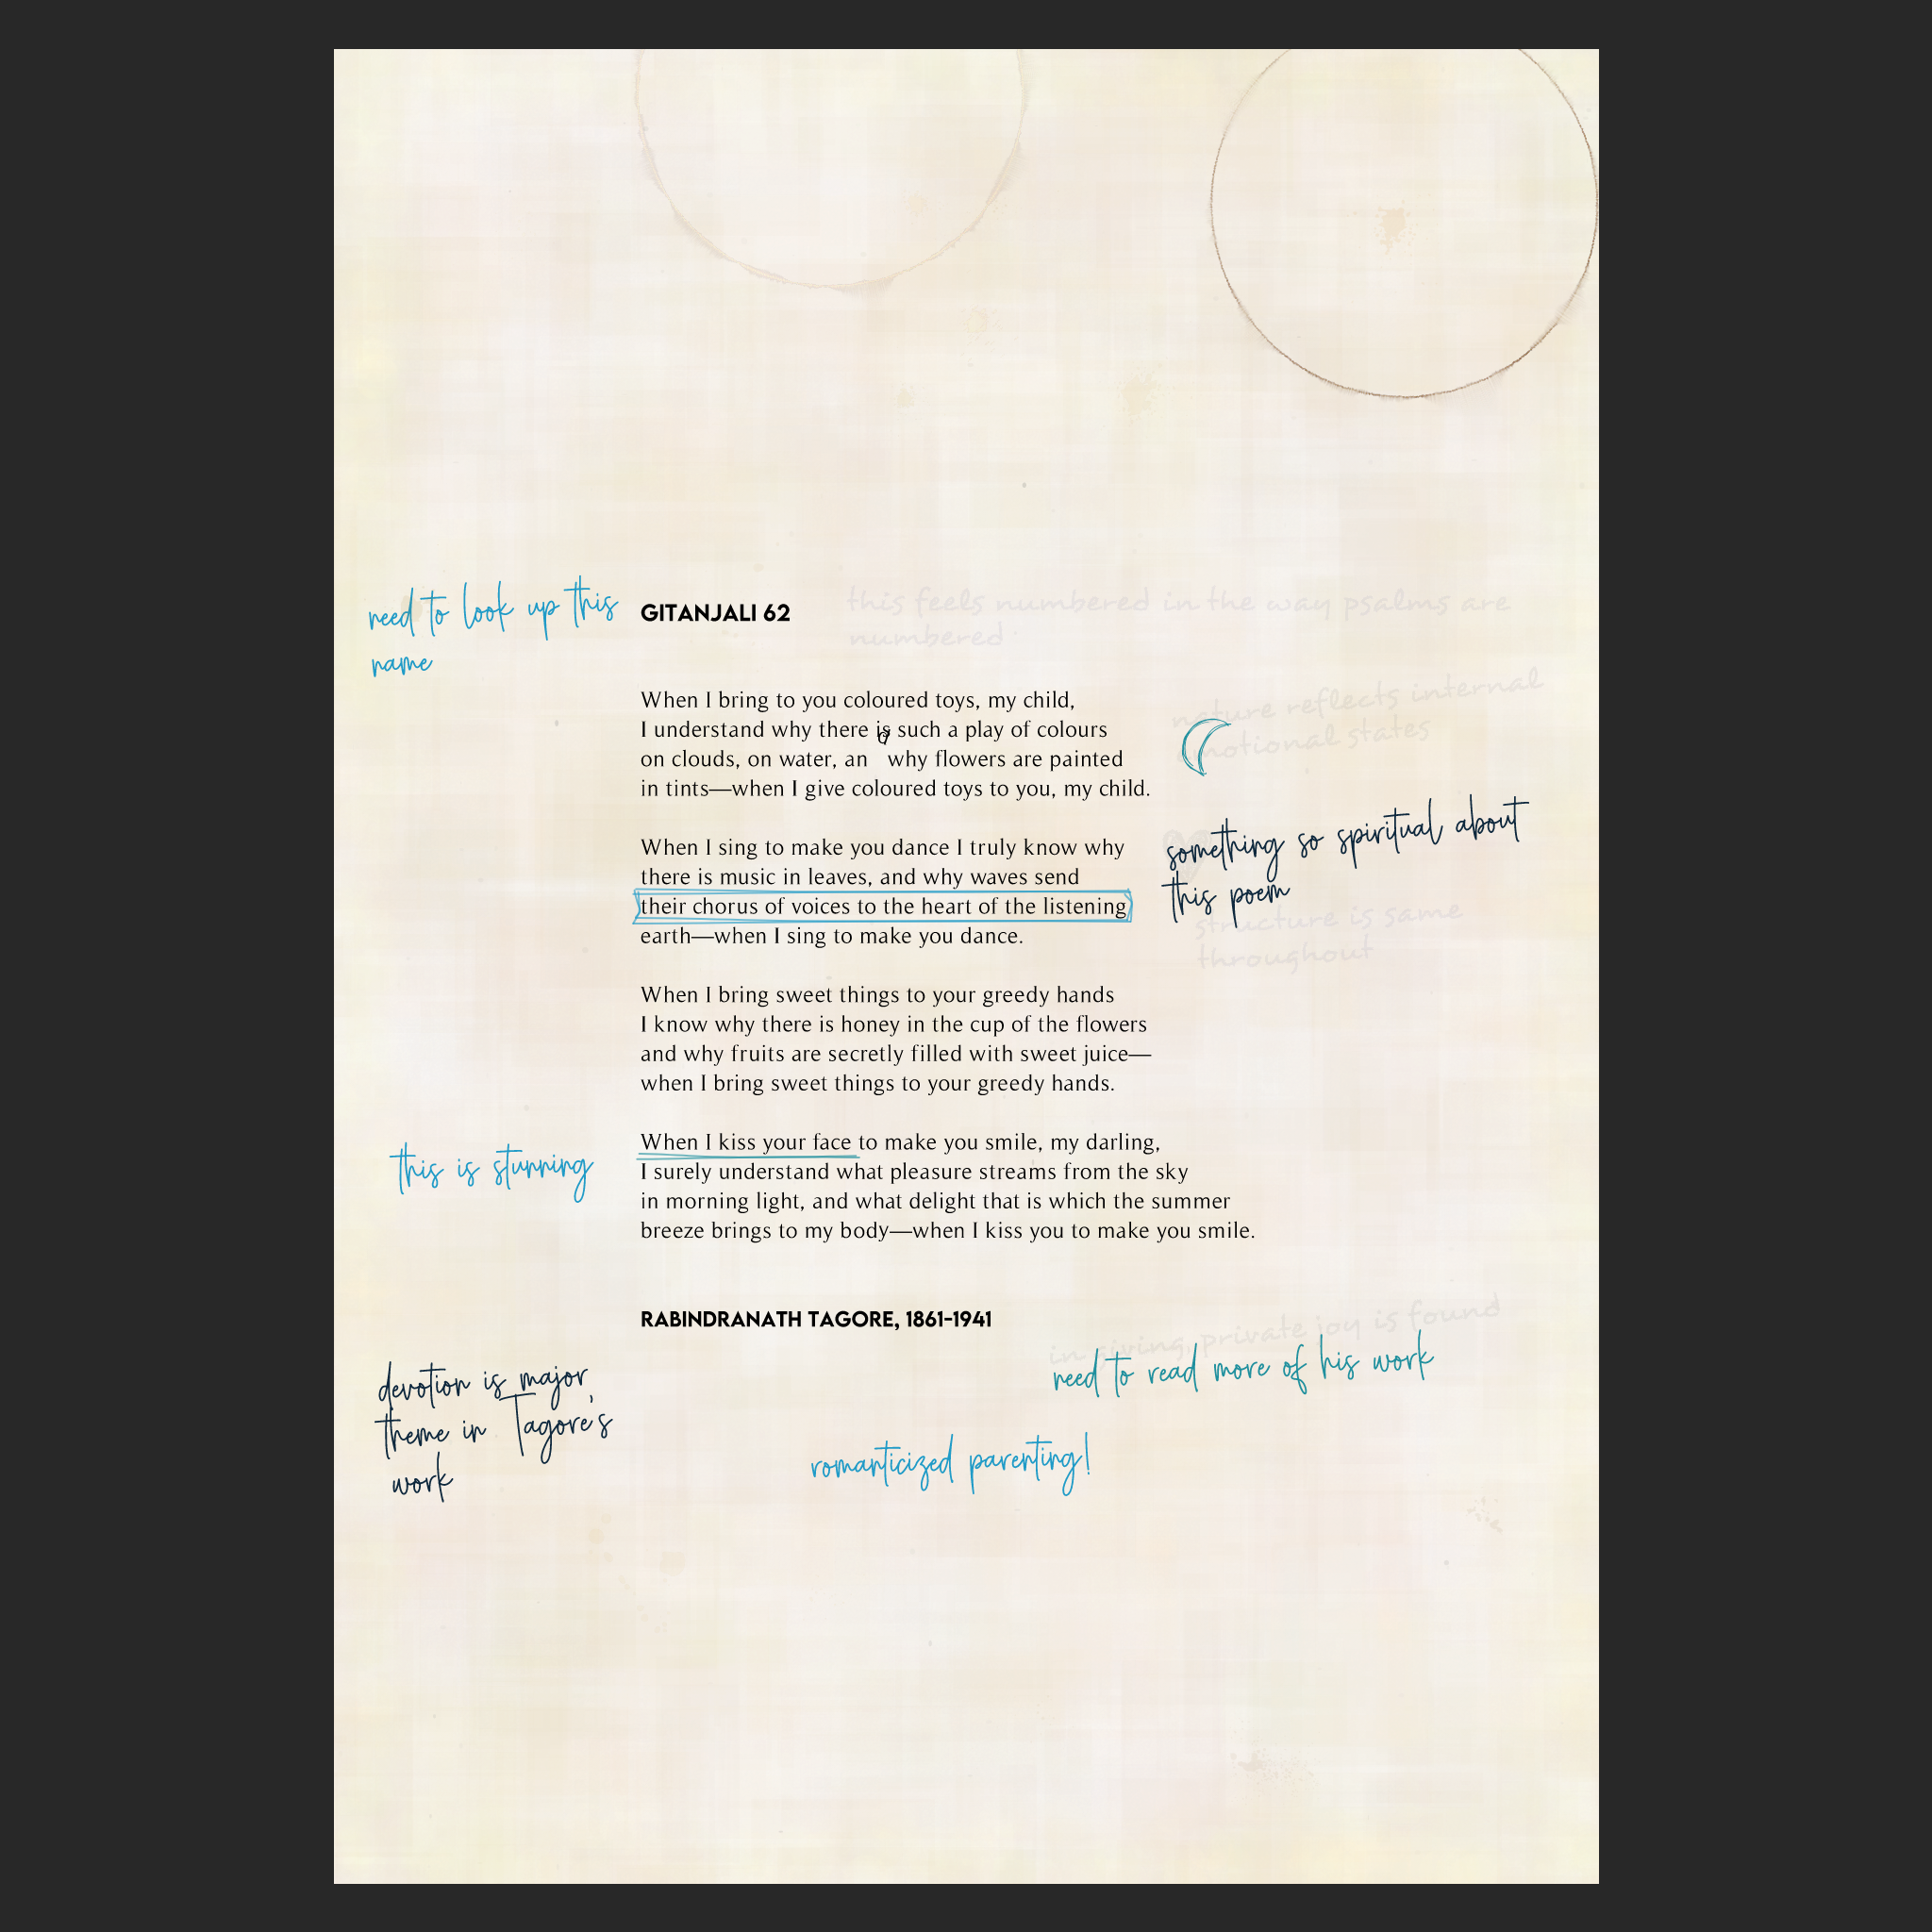 need to look up this
name
GITANJALI 62
this feels numbered in the way psalms are
numbered
When I bring to you coloured toys, my child,
I understand why there is such a play of colours
on clouds, on water, an d why flowers are painted
in tints—when I give coloured toys to you, my child.
nature reflects internal
emotional states
When I sing to make you dance I truly know why
there is music in leaves, and why waves send
their chorus of voices to the heart of the listening
earth—when I sing to make you dance.
something so spiritual about
this poem
structure is same
throughout
When I bring sweet things to your greedy hands
I know why there is honey in the cup of the flowers
and why fruits are secretly filled with sweet juice—
when I bring sweet things to your greedy hands.
this is stunning
When I kiss your face to make you smile, my darling,
I surely understand what pleasure streams from the sky
in morning light, and what delight that is which the summer
breeze brings to my body—when I kiss you to make you smile.
RABINDRANATH TAGORE, 1861-1941
in giving, private joy is found
need to read more of his work
devotion is major
theme in Tagore's
work
romanticized parenting!